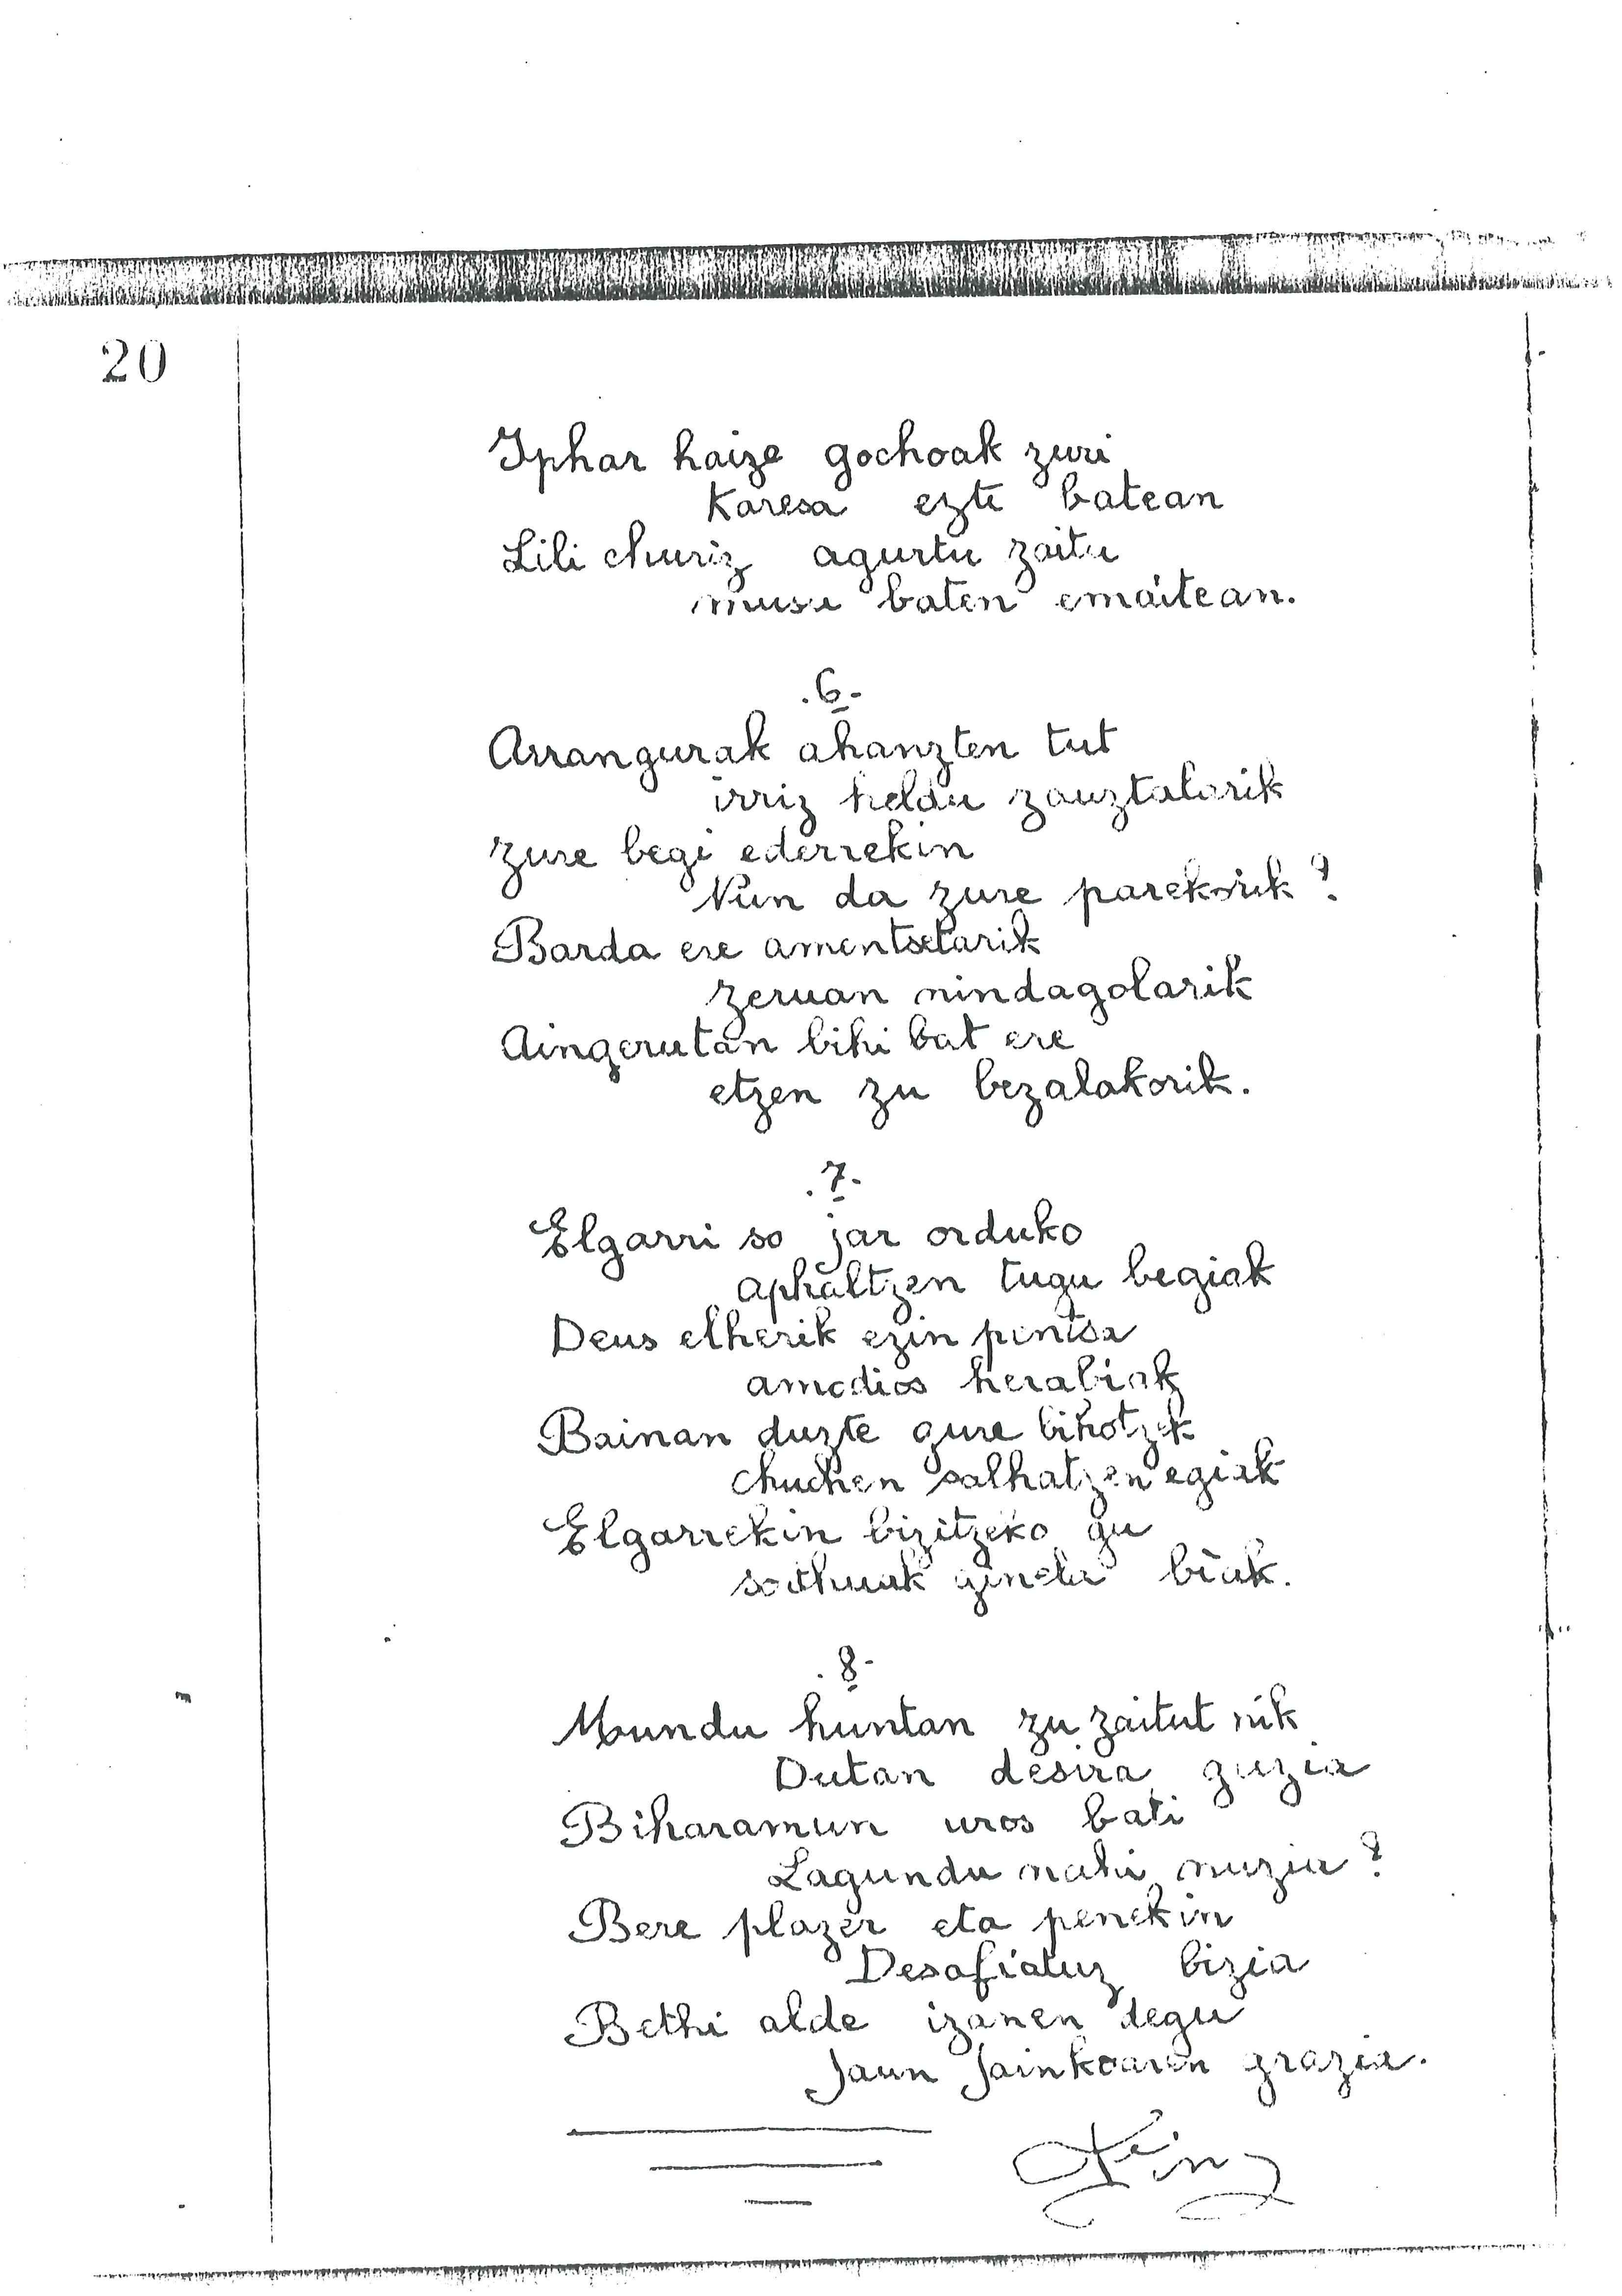 20
Iphar haize gochoak zuri
Karesa ezte batean
Lili churiz agurtu zaitu
musu baten emaitean.
.6.
Arrangurak ahanzten tut
irriz heldu zauztalarik
Zure begi ederrekin
Nun da zure parekorik ?
Barda ere amentsetarik
zeruan nindagolarik
Aingerutan bihi bat ere
etzen zu bezalakorik.
.7.
Elgarri so jar orduko
aphaltzen tugu begiak
Deus elherik ezin pentsa
amodios herabiak
Bainan duzte gure bihotzek
chuchen salhatzen egiak
Elgarrekin bizitzeko gu
sorthuak ginela biak.
.8.
Mundu huntan zu zaitut nik
Dutan desira guzia
Biharamun uros bati
Lagundu nahi nuzia ?
Bere plazer eta penekin
Desafiatuz bizia
Bethi alde izanen degu
Jaun Jainkoaren grazia.
Fin